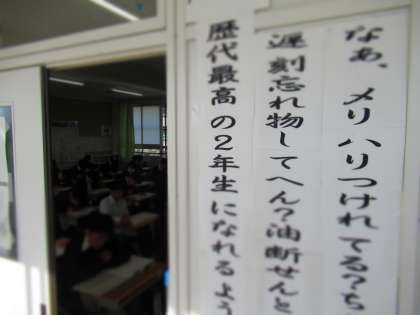 なあ、メリハリつけれてる？ち
遅刻忘れ物してへん？油断せんと
歴代最高の2年生になれるよう